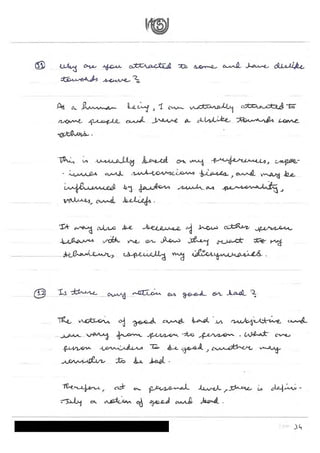 11 Why are you attracted to some and have dislike
towards some?
As a human being, I am naturally attracted to
some people and have a dislike towards some
others.
This is usually based on my preferences, exper-
-iences and subconscious biases, and may be
influenced by factors such as personality,
values, and beliefs.
It may also be because of how other person
behaves with me or how they react to my
behaviour, especially my idiosyncrasies.
12 Is there any notion as good or bad?
The notion of good and bad is subjective and
can vary from person to person. What one
person considers to be good, another may
consider to be bad.
Therefore, at a personal level, there is defini-
-tely a notion of good and bad.
34